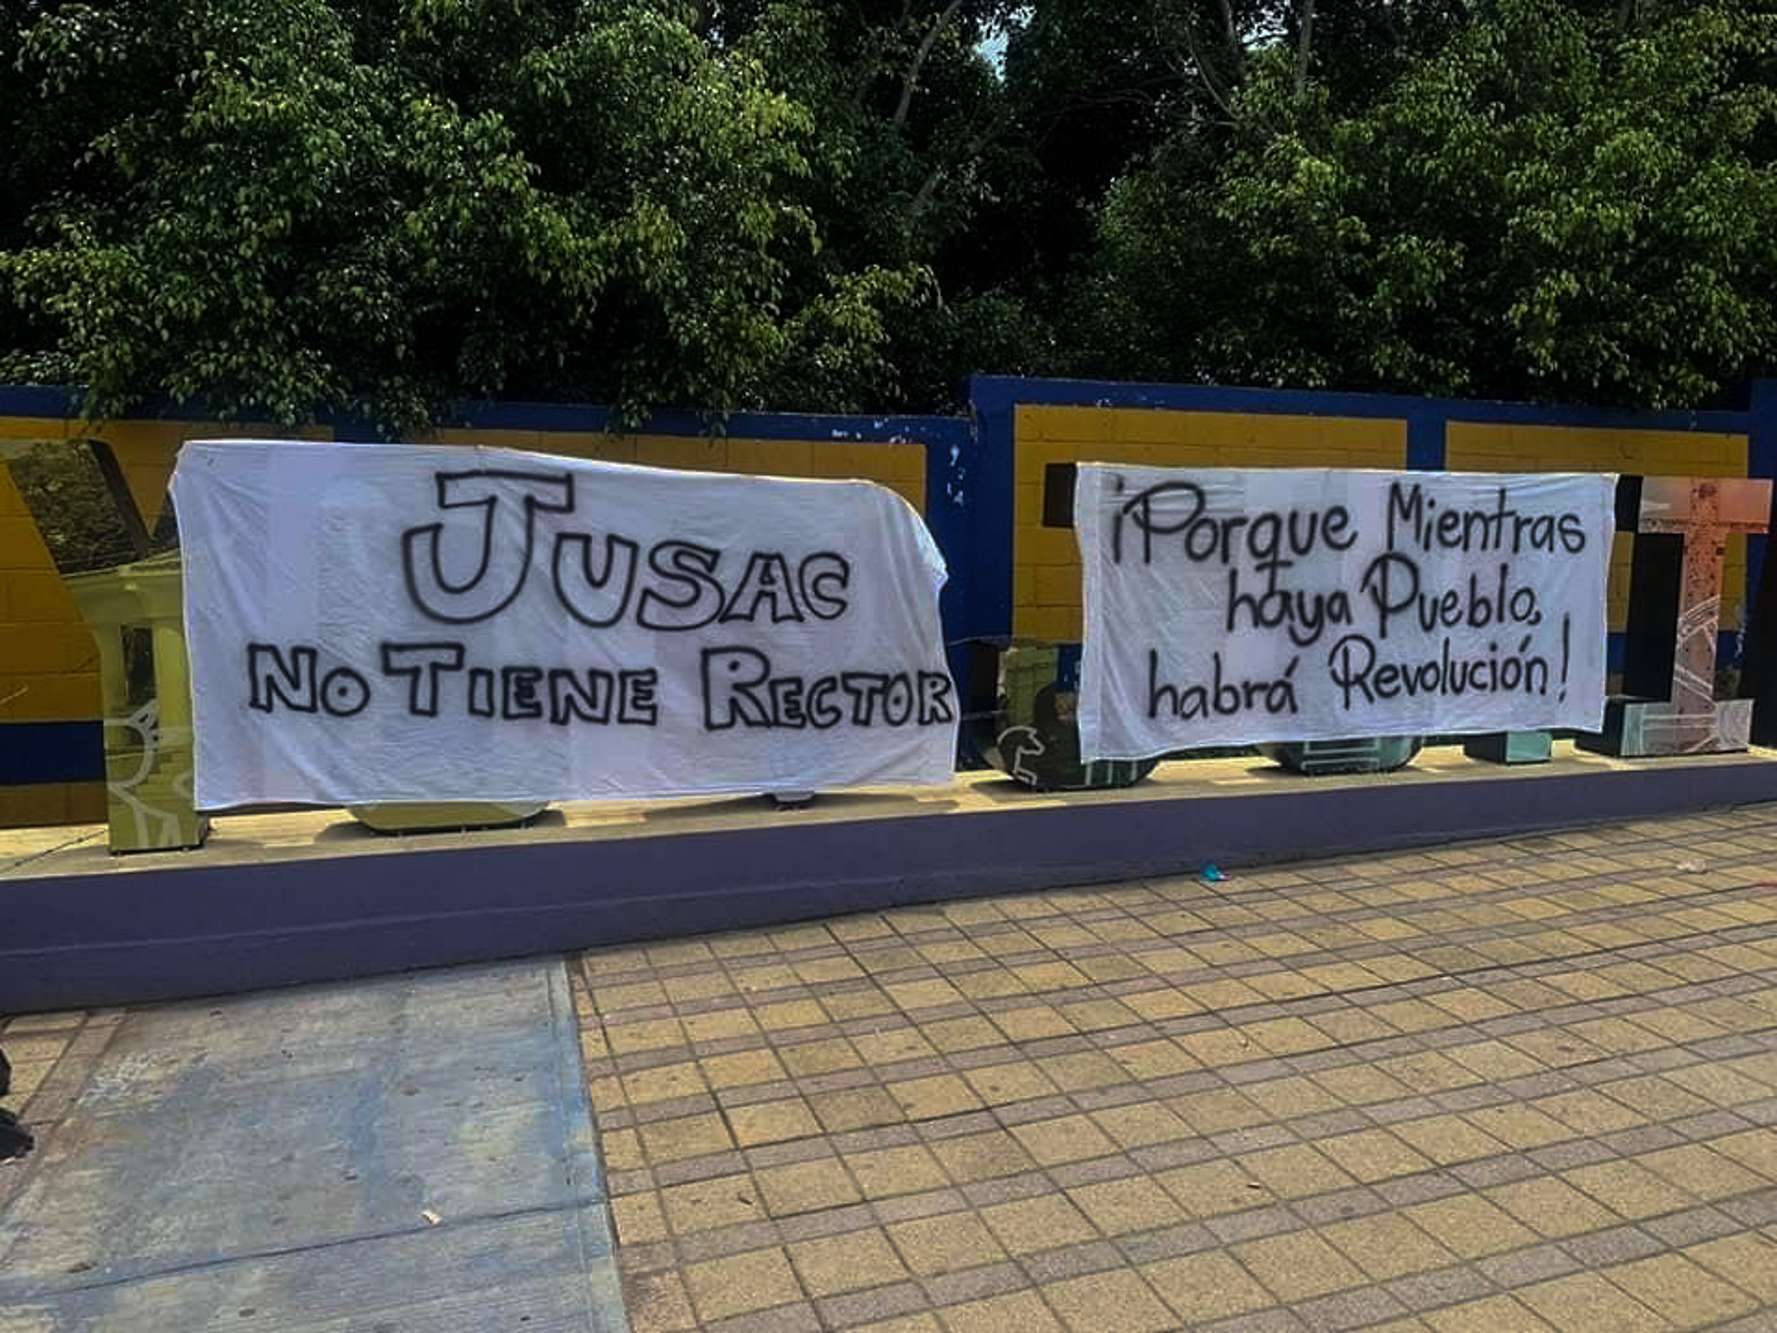 JUSAC
NO TIENE RECTOR
¡Porque Mientras
haya Pueblo,
habrá Revolución!